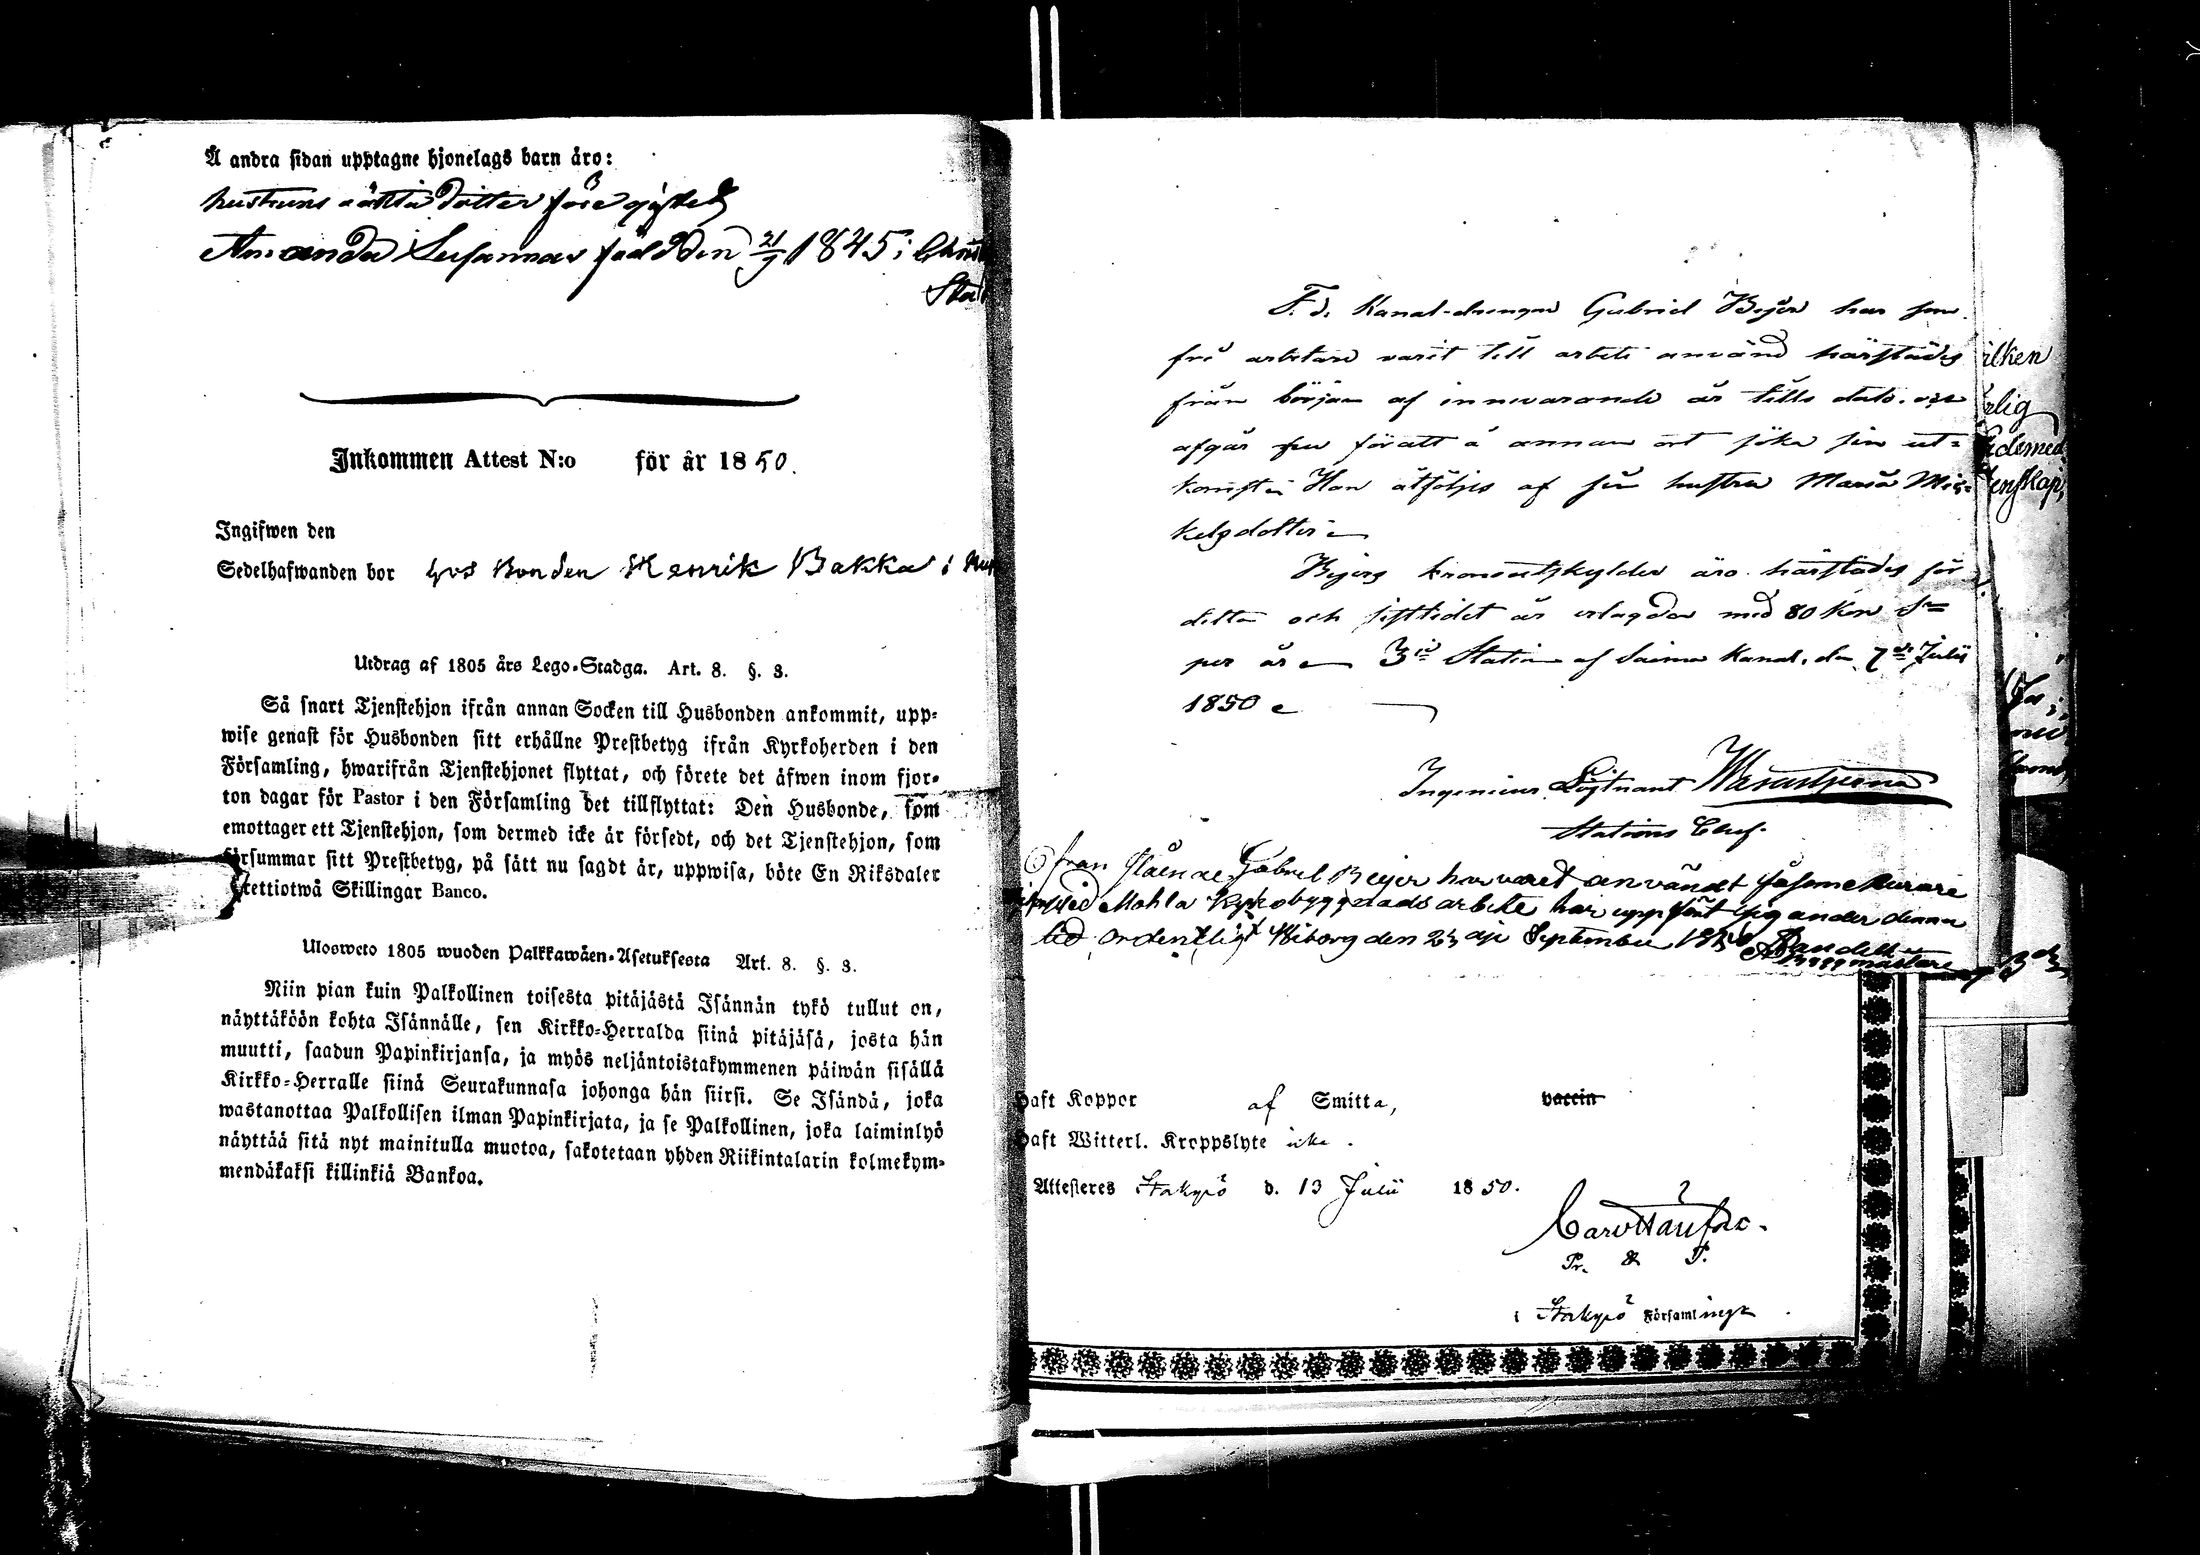 Å andra sidan upptagne hjonelags barn äro:
hustruns oäkta dotter före giftet
Amanda Susanna född den 21/9 1845 i
Inkommen Attest N:o för år 1850.
Ingifwen den
Sedelhafwanden bor hos Bonden Henrik Bakka i
Utdrag af 1805 års Lego-Stadga. Art. 8. §. 3.
Så snart Tjenstehjon ifrån annan Socken till Husbonden ankommit, upp-
wise genast för Husbonden sitt erhållne Prestbetyg ifrån Kyrkoherden i den
Församling, hwarifrån Tjenstehjonet flyttat, och förete det äfwen inom fjor-
ton dagar för Pastor i den Församling det tillflyttat: Den Husbonde, som
emottager ett Tjenstehjon, som dermed icke är försedt, och det Tjenstehjon, som
försummar sitt Prestbetyg, på sätt nu sagdt är, uppwisa, böte En Riksdaler
trettiotwå Skillingar Banco.
Ulosweto 1805 wuoden Palkkawäen-Asetuksesta Art. 8. §. 3.
Niin pian kuin Palkollinen toisesta pitäjästä Isännän tykö tullut on,
näyttäköön kohta Isännälle, sen Kirkko-Herralda siinä pitäjäsä, josta hän
muutti, saadun Papinkirjansa, ja myös neljäntoistakymmenen päiwän sisällä
Kirkko-Herralle siinä Seurakunnasa johonga hän siirsi. Se Isändä, joka
wastanottaa Palkollisen ilman Papinkirjata, ja se Palkollinen, joka laiminlyö
näyttää sitä nyt mainitulla muotoa, sakotetaan yhden Riikintalarin kolmekym-
mendäkaksi killinkiä Bankoa.
F. d. Kanal-drengen Gabriel Bejer har som
fri arbetare varit till arbete använd härstädes
från början af innevarande år tills dato, och
afgår nu för att å annan ort söka sin ut-
komst. Han åtföljes af sin hustru Maria Mic-
kelsdotter
Bejers kronoutskylder äro härstädes för
detta och sistlidet år erlagda med 80 Kop Sr
per år 3ie Station af Saima Kanal, den 7de Julii
1850
Ingenieur Löjtnant
Stations Chef.
Gabriel Beijer har varit använd såsom Murare
wid Mohla Kyrkobyggnads arbete har uppfört sig under denna
tid ordentligt Wiborg den 23dje September 1850
Byggmästare
haft Koppor af Smitta, vaccin
haft Witterl. Kroppslyte icke.
Attesteres d. 13 Julii 1850.
i Församling
ilken
rlig
enskap,